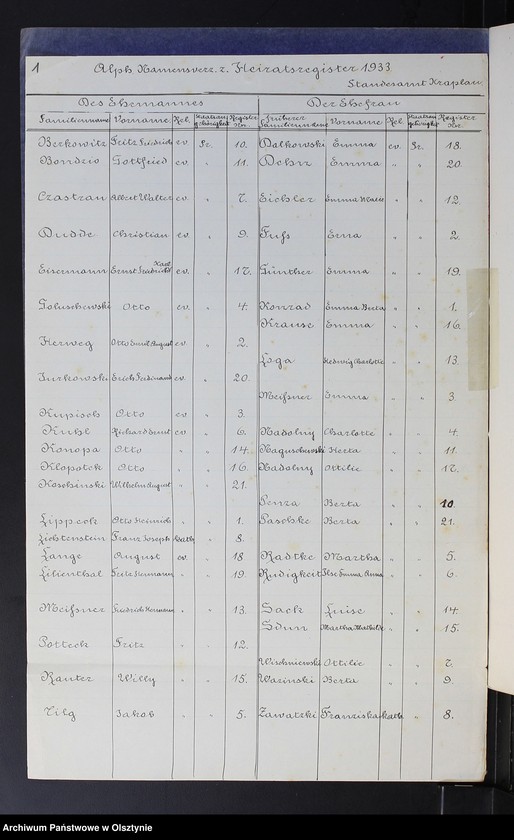 1 Alph. Namensverz. z. Heiratsregister 1933
Standesamt Kraplau
Des Ehemannes Der Ehefrau
Familienname Vorname Rel. Staatsangehörigkeit Register Nr. Frührer Familienname Vorname Rel. Staatsangehörigkeit Register Nr.
Berkowitz Fritz Friedrich ev. Pr. 10. Dalkowski Emma ev. Pr. 18.
Bondzio Gottfried ev. " 11. Dehn Emma " " 20.
Czastrau Albert Walter ev. " 7. Eichler Emma Marie " " 12.
Dudde Christian ev. " 9. Fuß Erna " " 2.
Eisermann Ernst Friedrich Karl ev. " 17. Günther Emma " " 19.
Goluschewski Otto ev. " 4. Konrad Emma Berta " " 1.
Krause Emma " " 16.
Herweg Otto Emil August ev. " 2.
Loga Hedwig Charlotte " " 13.
Jurkowski Erich Ferdinand ev. " 20.
Meißner Emma " " 3.
Kupisch Otto ev. " 3.
Kuhl Richard Ernst ev. " 6. Nadolny Charlotte " " 4.
Konopa Otto " " 14. Naguschewski Herta " " 11.
Klopotek Otto " " 16. Nadolny Ottilie " " 17.
Koschinski Wilhelm August " " 21.
Penza Berta " " 10.
Lippeck Otto Heinrich " " 1. Paschke Berta " " 21.
Lichtenstein Franz Joseph kath. " 8.
Lange August ev. " 18. Radtke Martha " " 5.
Lilienthal Fritz Hermann " " 19. Rudigkeit Ilse Emma Anna " " 6.
Meißner Friedrich Hermann " " 13. Sack Luise " " 14.
Sdun Martha Mathilde " " 15.
Potteck Fritz " " 12.
Wischniewski Ottilie " " 7.
Rauter Willy " " 15. Wasinski Berta " " 9.
Tilg Jakob " " 5. Zawatzki Franziska kath. " 8.
Archiwum Państwowe w Olsztynie